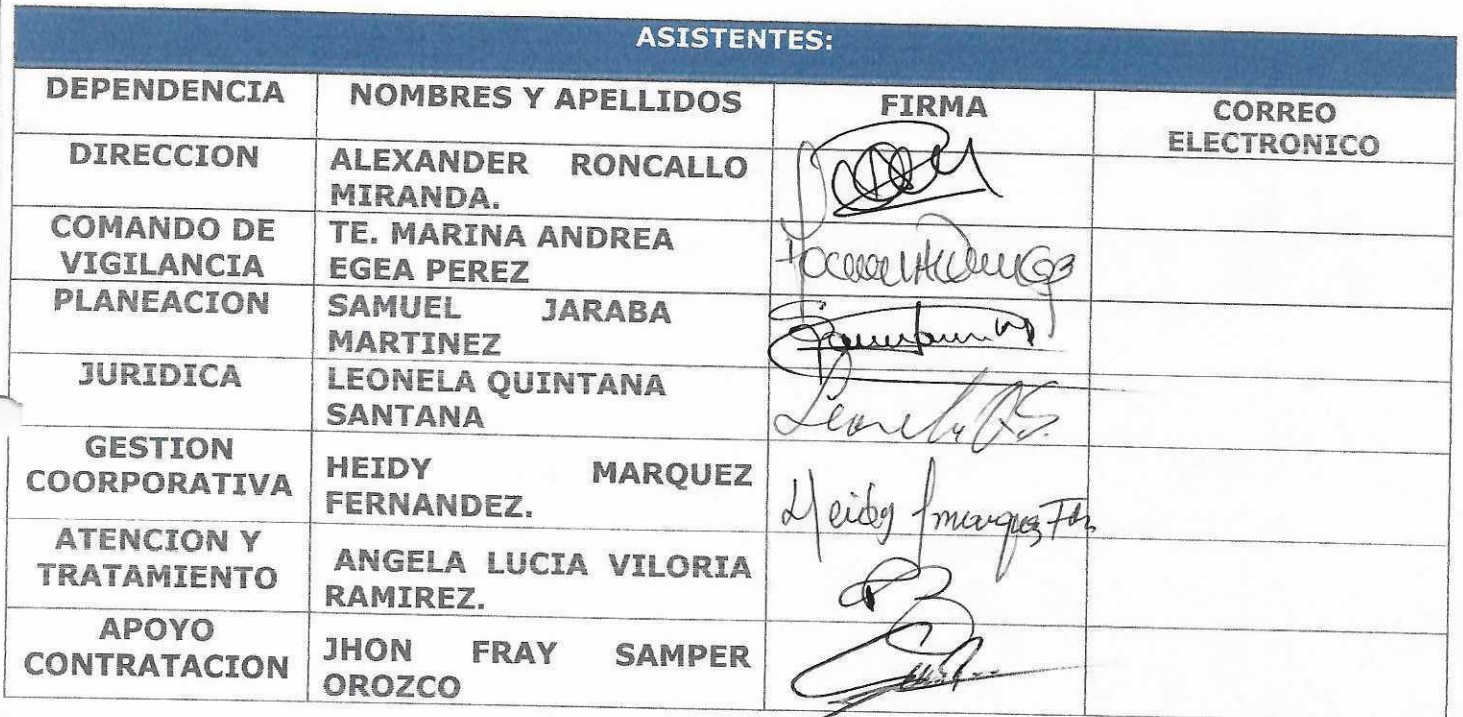 ASISTENTES:
DEPENDENCIA NOMBRES Y APELLIDOS FIRMA CORREO
ELECTRONICO
DIRECCION ALEXANDER RONCALLO
MIRANDA.
COMANDO DE TE. MARINA ANDREA
VIGILANCIA EGEA PEREZ
PLANEACION SAMUEL JARABA
MARTINEZ
JURIDICA LEONELA QUINTANA
SANTANA Leonela QS.
GESTION
COORPORATIVA HEIDY MARQUEZ
FERNANDEZ. Heidy marquez
ATENCION Y
TRATAMIENTO ANGELA LUCIA VILORIA
RAMIREZ.
APOYO
CONTRATACION JHON FRAY SAMPER
OROZCO